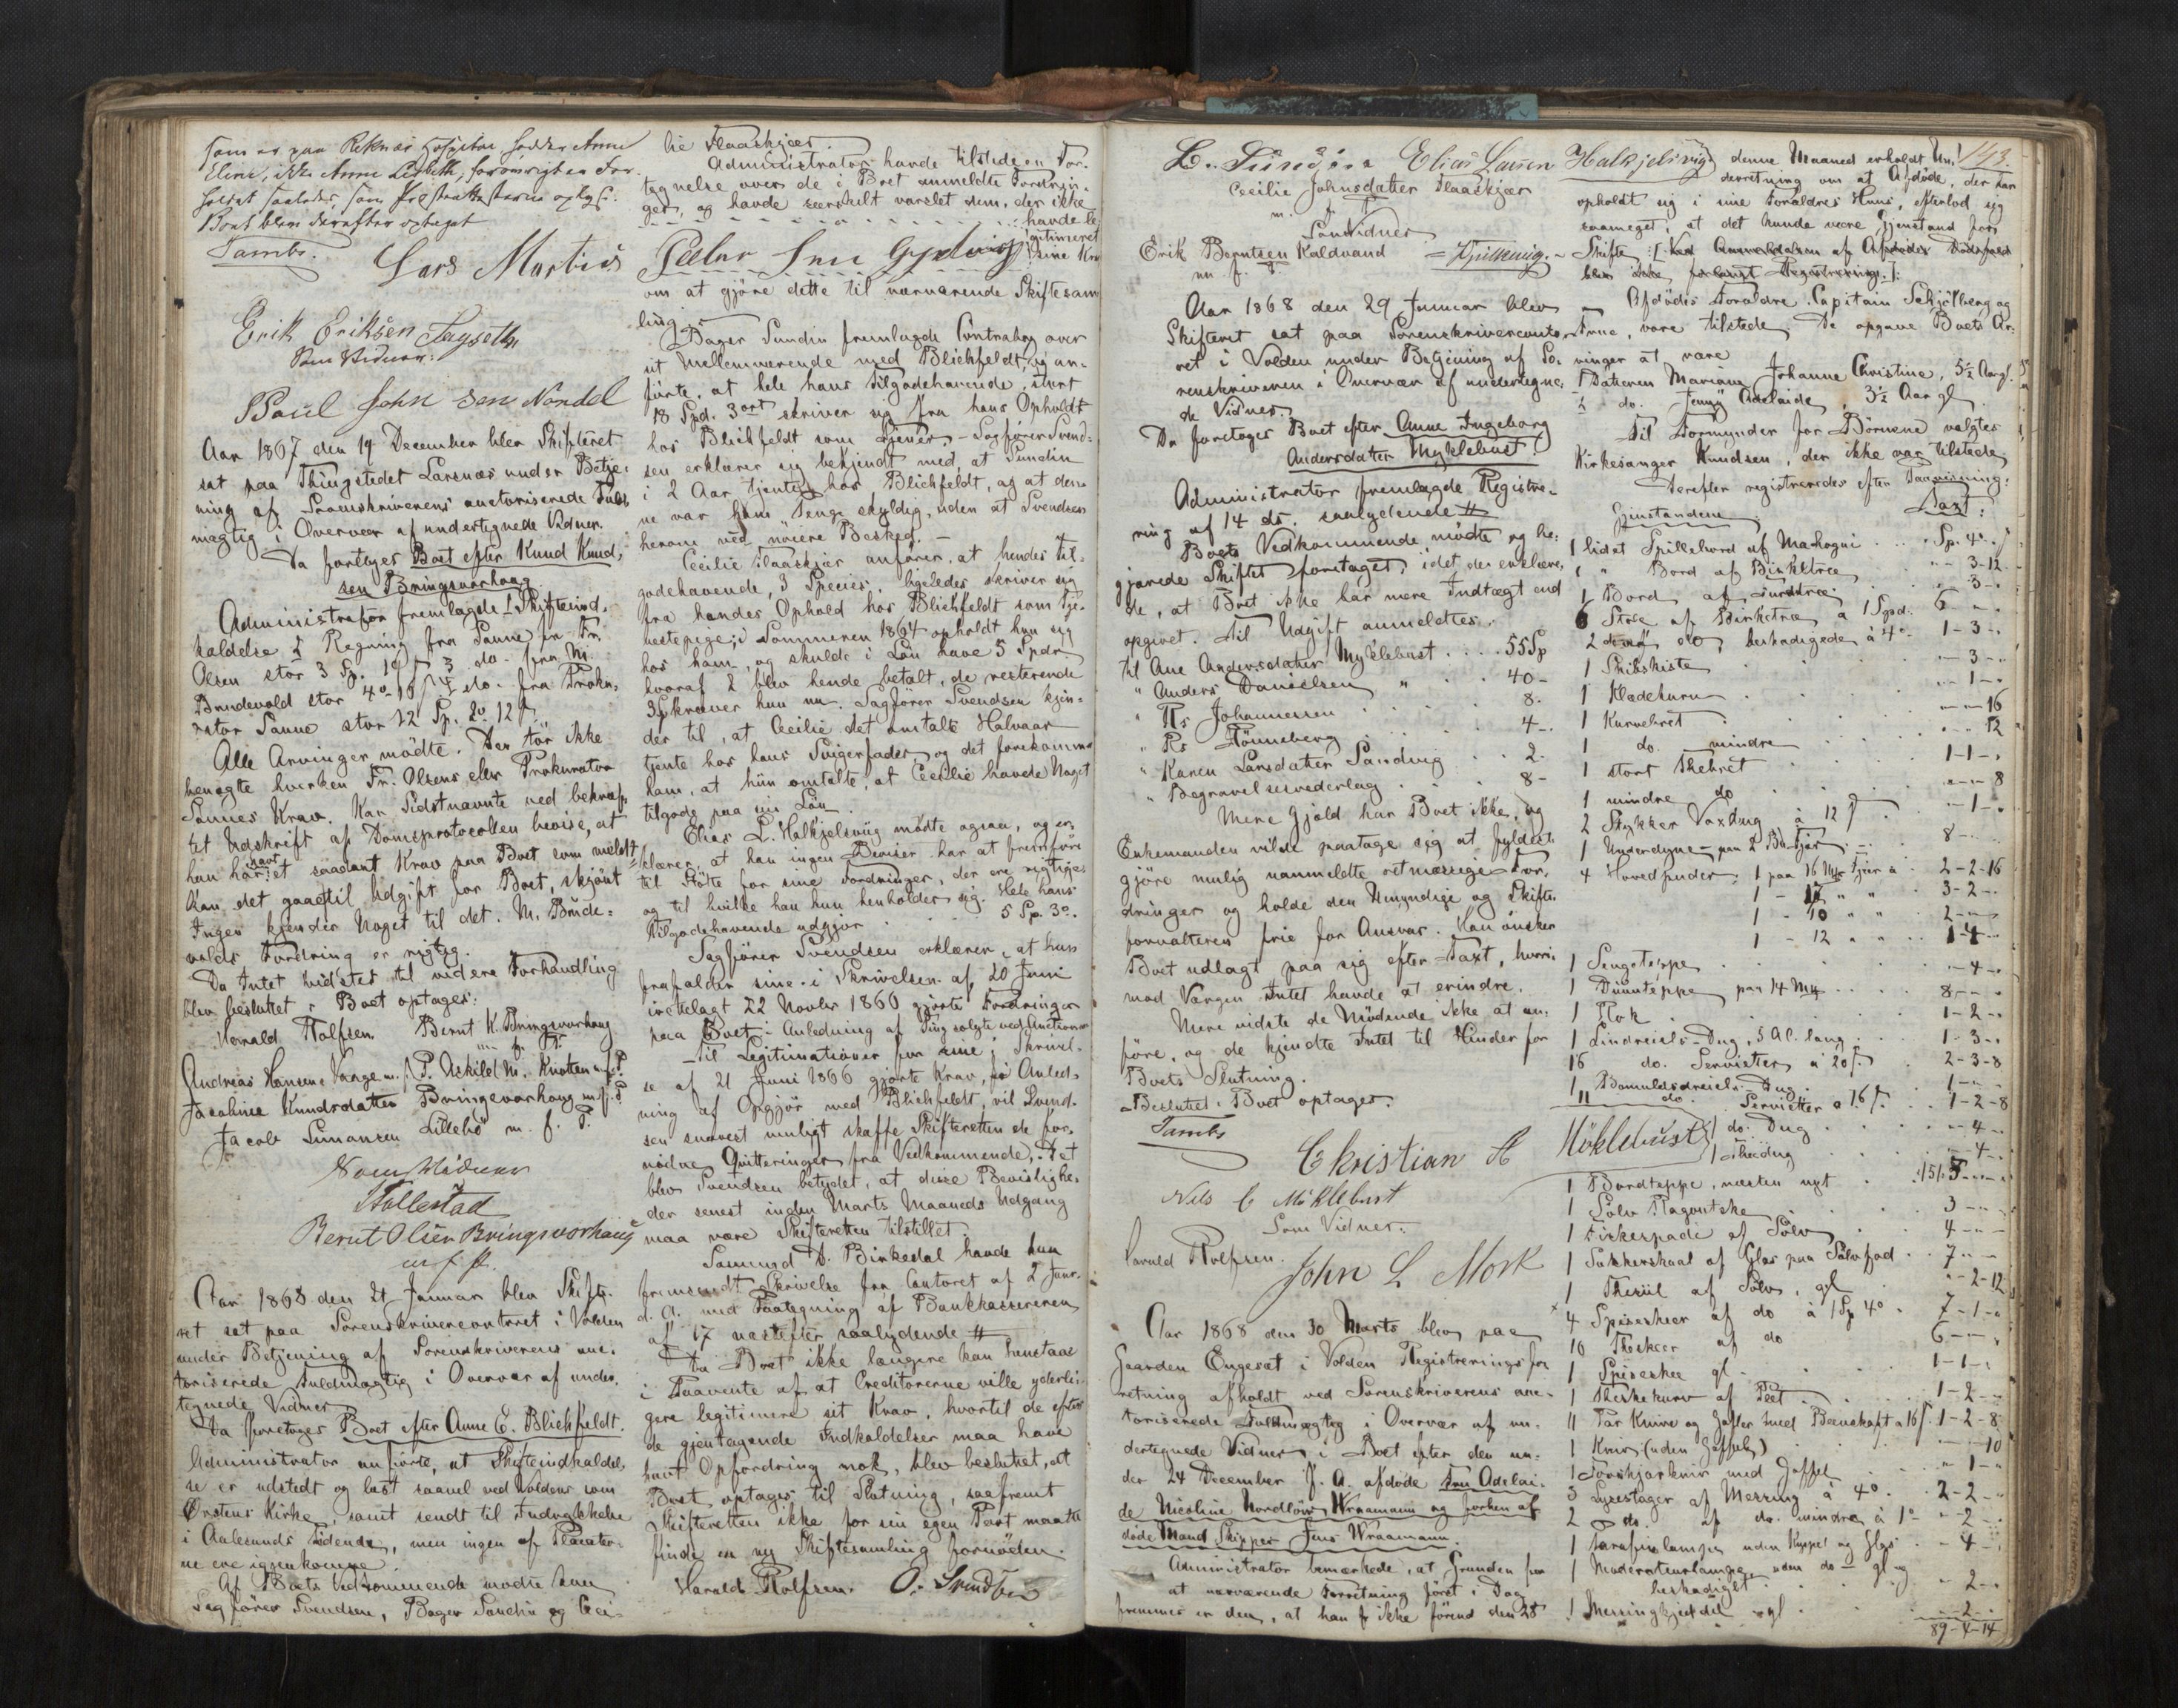 som er paa Reknæs Hospital, hedder Anne
Eline, ikke Anne Lisbeth, forövrigt er For-
holdet saaledes, som
Boet blev derefter optaget
Jambs.
Lars Martin
Erik Eriksen Tagseth
Som Vidner:
Paul Johnsen Nordal
Aar 1867 den 19 December blev Skifteret
sat paa Thingstedet Larsnæs under Betje-
ning af Sorenskriverens auctoriserede Fuld-
mægtig i Overvær af undertegnede Vidner.
Da foretoges Boet efter Knud Knud-
sen Bringsvorhaug
Administrator fremlagde 1 Skifteind-
kaldelse 2 Regning fra Sanne for Fr.
Olsen stor 3 Sp. 3 do. fra M.
Brudevold stor 4 do. fra Proku-
rator Sanne stor 12 Sp. 2o 12 s
Alle Arvinger mödte. Der tör ikke
benegte hverken Fr. Olsens eller Prokurator
Sannes Krav. Kan Sidstnævnte ved bekræf-
tet Udskrift af Domsprotocollen bevise, at
han har havt et saadant Krav paa Boet som meldt,
kan det gaae til Udgift for Boet, skjönt
Ingen kjender Noget til det. M. Brude-
volds Fordring er rigtig.
Da Intet vidstes til videre Forhandling
blev besluttet: Boet optages:
Harald Rolfsen Bernt K. Bringsvorhaug
m. f. P.
Andreas Hansen Vange m. f. P. Askild M. Knotten m. f. P.
Jacobine Knudsdatter Bringsvorhaug m. f. P.
Jacob Simonsen Lillebö m. f. P.
Som Vidner
Hallestad
Bernt Olsen Bringsvorhaug
m. f. P.
Aar 1868 den 21 Januar blev Skifte-
ret sat paa Sorenskrivercontoret i Volden
under Betjening af Sorenskriverens auc-
toriserede Fuldmægtig i Overvær af under-
tegnede Vidner
Da foretoges Boet efter Anne E. Blichfeldt.
Administrator anförte, at Skifteindkaldel-
se er udstedt og læst saavel ved Voldens som
Örstens Kirke, samt sendt til Indrykkelse
i Aalesunds Tidende, men ingen af Placater-
ne ere igjenkomne
Af Boets Vedkommende mödte kun
Sagförer Svendsen, Bager Sundin og Ceci-
lie Flaaskjær.
Administrator havde tilstede en For-
tegnelse over de i Boet anmeldte Fordrin-
ger, og havde særskilt varslet dem, der ikke
havde le-
gitimeret
sine Krav
Peder Gjelsvig
om at gjöre dette til nærværende Skiftesam-
ling.
Bager Sundin fremlagde Contrabog over
sit Mellemværende med Blichfeldt, og an-
förte, at hele hans Tilgodehavende, stort
18 Spd. 3 ort skriver sig fra hans Ophold
hos Blichfeldt som Tjener. – Sagförer Svend-
sen erklærer sig bekjendt med, at Sundin
i 2 Aar tjente hos Blichfeldt, og at den-
ne var ham Penge skyldig, uden at Svendsen
herom ved nöiere Besked. –
Cecilie Flaaskjær anförer, at hendes Til-
godehavende, 3 Species, ligeledes skriver sig
fra hendes Ophold hos Blichfeldt som Tje-
nestepige; i Sommeren 1864 opholdt hun sig
hos ham, og skulde i Lön have 5 Spdr.
hvoraf 2 blev hende betalt, de resterende
3 kræver hun nu. Sagförer Svendsen kjen-
der til, at Cecilie det omtalte Halvaar
tjente hos hans Svigerfader, og det forekommer
ham, at hun omtalte, at Cecilie havde Noget
tilgode paa sin Lön.
Elias L. Halkjelsvig mödte ogsaa, og er-
klærer, at han ingen Beviser har at fremföre
til Stötte for sine Fordringer, der ere rigtige,
og til hvilke han kun henholder sig. Hele hans
Tilgodehavende udgjör 5 Sp. 3o.
Sagförer Svendsen erklærer, at han
frafalder sine i Skrivelsen af 20 Juni
indelagt 22 Novbr 1860 gjorte Fordringer
paa Boet i Anledning af Ting solgte ved Auctionen
Til Legitimationer for sine i Skrivel-
se af 21 Juni 1866 gjorte Krav, i Anled-
ning af Opgjör med Blichfeldt, vil Svend-
sen snarest muligt skaffe Skifteretten de for-
nödne Qvitteringer fra Vedkommende. – Det
blev Svendsen betydet, at disse Bevislighe-
der senest inden Marts Maaneds Udgang
maa være Skifteretten tilstillet.
Samund D. Birkedal havde kun
fremsendt Skrivelse fra Contoret af 2 Janr.
d. A. med Paategning af Bankkassereren
af 17 næstefter saalydende #
Da Boet ikke længere kan henstaae
i Paavente af at Creditorerne ville yderli-
gere legitimere sit Krav, hvortil de efter
de gjentagende Indkaldelser maa have
havt Opfordring nok, blev besluttet, at
Boet optages til Slutning, saafremt
Skifteretten ikke for sin egen Part maatte
finde en ny Skiftesamling fornöden.
Harald Rolfsen. O. Svendsen
L. Sundin Elias Larsen Halkjelsvig
Cecilie Johnsdatter Flaaskjær
m. f. P.
Som Vidner
Erik Berntsen Kaldvand
m. f. P.
Aar 1868 den 29 Januar blev
Skifteret sat paa Sorenskrivercontoret
i Volden under Betjening af So-
renskriveren i Overvær af undertegne-
de Vidner.
Da foretoges Boet efter Anne Ingeborg
Andersdatter Myklebust.
Administrator fremlagde Registre-
ring af 14 ds. saalydende #
Boets Vedkommende mödte og be-
gjærede Skiftet foretaget, idet de erklære-
de, at Boet ikke har mere Indtægt end
opgivet. Til Udgift anmeldtes.
til Ane Andersdatter Myklebust . . . 55 Sp
" Anders Danielsen " . . 40 -
" Rs Johannessen . . . 8.
" Rs Tönneberg . . . 4 -
" Karen Larsdatter Sandvig . . 2.
" Begravelsesvederlag . . . 8 -
Mere Gjæld har Boet ikke, og
Enkemanden vilde paatage sig at fyldest-
gjöre mulig uanmeldte retmæssige For-
dringer og holde den Umyndige og Skifte-
forvalteren frie for Ansvar. Han önsker
Boet udlagt paa sig efter Taxt, hvori-
mod Værgen Intet havde at erindre.
Mere vidste de Mödende ikke at an-
före, og de kjendte Intet til Hinder for
Boets Slutning.
Besluttet: Boet optages.
Jambs
Christian A Möklebust
Nils C Möklebust
Som Vidner.
Harald Rolfsen.
John L Mork
Aar 1868 den 30 Marts blev paa
Gaarden Engeset i Volden Registreringsfor-
retning afholdt ved Sorenskriverens auc-
toriserede Fuldmægtig i Overvær af un-
dertegnede Vidner, i Boet efter den un-
der 24 December f. A. afdöde Fru Adelai-
de Nicoline Nordlöw Wraamann og forhen af-
döde Mand Skipper Jens Wraamann.
Administrator bemærkede, at Grunden for
at nærværende Forretning först i Dag
fremmes er den, at han ikke förend den 28
143.
denne Maaned erholdt Un-
derretning om at Afdöde, der har
opholdt sig i sine Forældres Huus, efterlod sig
saameget, at det kunde være Gjenstand for
Skifte :/: Ved Anmeldelsen af Afdödes Dödsfald
blev ikke forlangt Registrering. :/:
Afdödes Forældre Capitain Schjötberg og
Frue, vare tilstede. De opgave Boets Ar-
vinger at være
1 Datteren Mariane Johanne Christine, 5½ Aar gl.
2 do. Jenny Adelaide, 3½ Aar gl
Til Formynder for Börnene valgtes
Kirkesanger Knudsen, der ikke var tilstede
Derefter registreredes efter Paaviisning:
Gjenstandene Taxt:
1 lidet Spillebord af Mahogni . . . Sp. 4 -
1 " Bord af Birketræ . . . " - 3 - 12
1 Bord af Furutræ . . . " - 3 -
6 Stole af Birketræ a 1 Spd. 6 - " -
2 do beskadigede à 4o - 1 - 3 -
1 Skibskiste . . . - 3 -
1 Klædekurv . . . - 1 -
1 Kurvebret . . . - " - 16
1 do. mindre . . . - " 12
1 stort Thebret . . . 1 - 1 -
1 mindre do . . . " - " - 8
2 Stykker Voxdug à 12 s . . - 1 -
1 Underdyne paa 2 B. Fjær . . 8 - "
4 Hovedpuder, 1 paa 16 Mk Fjær à . 2 - 2 - 16
1 - 12 " " 3 - 2 -
1 - 10 " " 2 - " -
1 - 12 " " 1 - 4 -
1 Sengeteppe . . . - 4 -
1 Duunteppe paa 14 Mk . . . 8 - " -
1 Flok . . . 1 - 2 -
1 Lindreiels-Dug, 5 Al. lang . . 1 - 3 -
16 do. Servietter à 20 s . . 2 - 3 - 8
1 Bomuldsdreiels Dug . . 1 - " -
11 do. Servietter a 16 s . . 1 - 2 - 8
1 do. Dug . . . - 4 -
1 Thedug . . . - 4 -
1 Bordteppe, næsten nyt . . 5 - " -
1 Sölv Ragoutske . . . 3 - " -
1 Fiskespade af Sölv . . . 4 - " -
1 Sukkerskaal af Glas paa Sölvfod . . 7 - " -
1 Thesiil af Sölv, gl . . " - 2 - 12
4 Spiseskeer af do à 1 Sp 4o . 7 - 1 -
10 Theskeer af do . . . 6 - " -
1 Spiseske gl - . . . 1 - 1 -
1 Theskekurv af Plet . . . 1 - 2 -
11 Par Knive og Gafler med Beenskaft a 16 s. 1 - 2 - 8
1 Kniv (uden Gaffel) . . . " - 10
1 Forskjærkniv med Gaffel . . " - 1 -
3 Lysestager af Messing à 4o . . 2 - 2 -
2 do. af do. mindre à 1o . - 2 -
1 Parafinlampe uden Kuppel og Glas . - 4 -
1 Moderateurlampe, uden do - gl og
beskadiget . . . - 2 -
1 Messingkjeddel gl . . . - 2 -
89 - 4 - 14